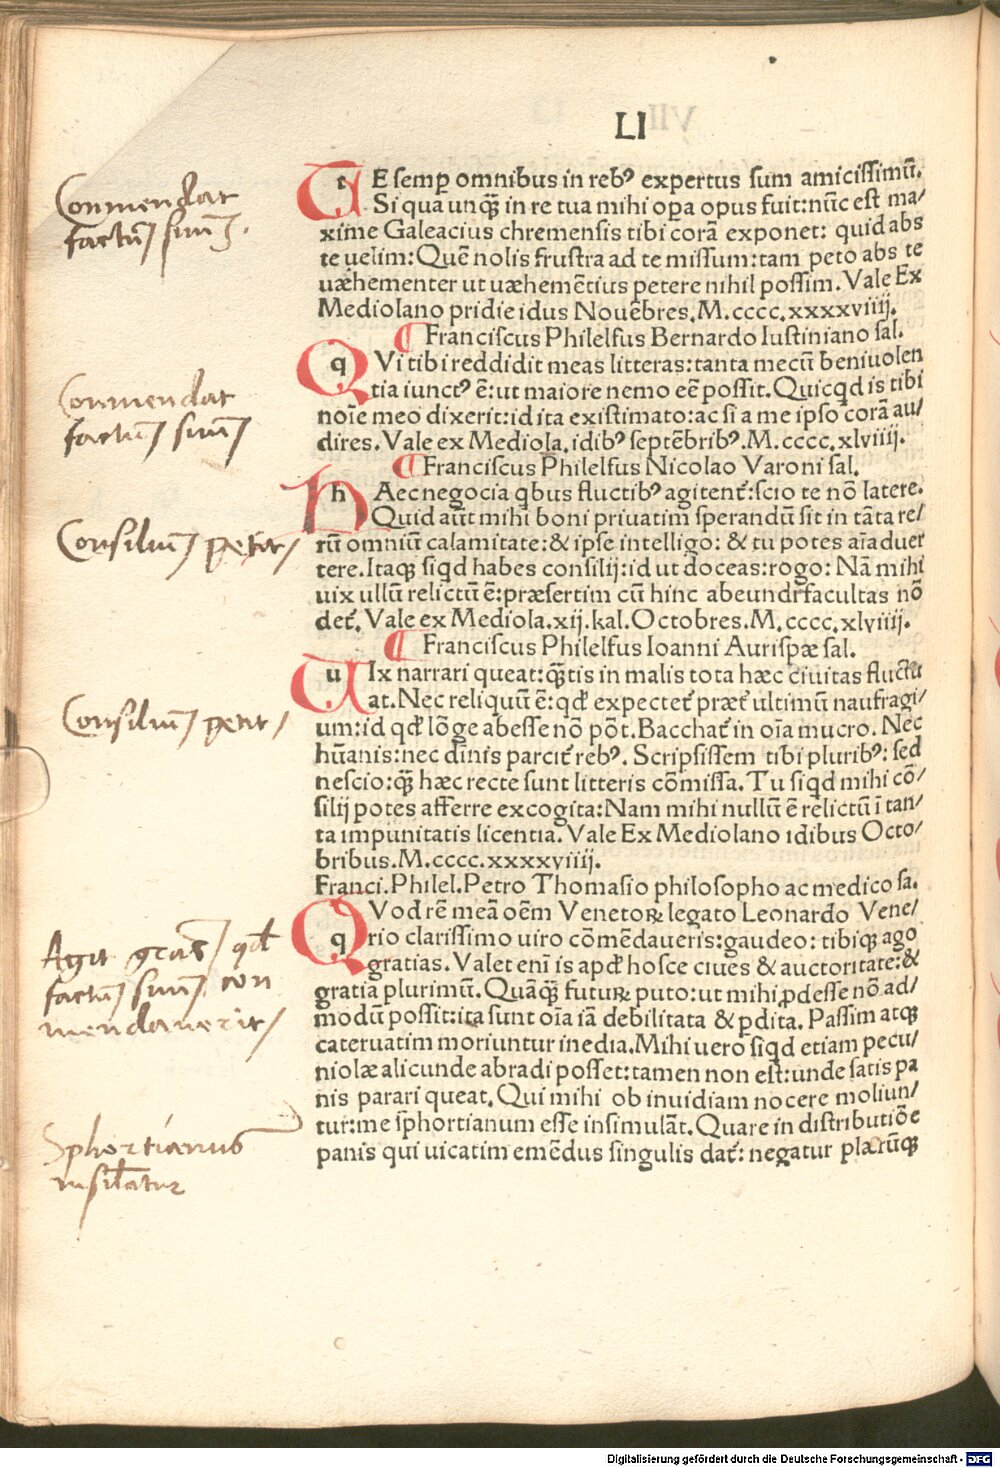 LI
Commendat
factū suū.
TE semꝑ omnibus in rebꝰ expertus sum amicissimū.
Si qua unq̄ꝫ in re tua mihi oꝑa opus fuit: nūc est ma/
xime Galeacius chremensis tibi corā exponet: quid abs
te uelim: Quē nolis frustra ad te missum: tam peto abs te
uæhementer ut uæhemētius petere nihil possim. Vale Ex
Mediolano pridie idus Nouēbres. M.cccc.xxxxviiij.
¶ Franciscus Philelfus Bernardo Iustiniano sal.
Commendat
factum suum
QVi tibi reddidit meas litteras: tanta mecū beniuolen
tia iunctꝰ ē: ut maiore nemo eē possit. Quicqd is tibi
noīe meo dixerit: id ita existimato: ac si a me ipso corā au/
dires. Vale ex Mediola. idibꝰ septēbribꝰ. M.cccc.xlviiij.
¶ Franciscus Philelfus Nicolao Varoni sal.
Consilium petit
hAec negocia qbus fluctibꝰ agitent᷑: scio te nō latere.
Quid aūt mihi boni priuatim sperandū sit in tāta re/
rū omniū calamitate: & ipse intelligo: & tu potes aīaduer
tere. Itaqꝫ siqd habes consilij: id ut doceas: rogo: Nā mihi
uix ullū relictū ē: præsertim cū hinc abeundi facultas nō
det᷑. Vale ex Mediola. xij. kal. Octobres. M.cccc.xlviiij.
¶ Franciscus Philelfus Ioanni Aurispæ sal.
Consilium petit
uIx narrari queat: q̄ꝫtis in malis tota hæc ciuitas fluctu
at. Nec reliquū ē: qd̛ expectet᷑ præt᷑ ultimū naufragi/
um: id qd̛ lōge abesse nō pōt. Bacchat᷑ in oīa mucro. Nec
hūanis: nec dīnis parcit᷑ rebꝰ. Scripsissem tibi pluribꝰ: sed
nescio: q̄ꝫ hæc recte sunt litteris cōmissa. Tu siqd mihi cō/
silij potes afferre excogita: Nam mihi nullū ē relictū ī tan/
ta impunitatis licentia. Vale Ex Mediolano idibus Octo/
bribus. M.cccc.xxxxviiij.
Franci. Philel. Petro Thomasio philosopho ac medico sa.
Agit gr̄as qd̛
factum suum con
mendauerit
QVod rē meā oēm Venetoꝝ legato Leonardo Vene/
rio clarissimo uiro cōmēdaueris: gaudeo: tibiqꝫ ago
gratias. Valet enī is apd̛ hosce ciues & auctoritate: &
gratia plurimū. Quāq̄ꝫ futuꝝ puto: ut mihi ꝓdesse nō ad/
modū possit: ita sunt oīa iā debilitata & ꝑdita. Passim atqꝫ
cateruatim moriuntur inedia. Mihi uero siqd etiam pecu/
niolæ alicunde abradi posset: tamen non est: unde satis pa
nis parari queat. Qui mihi ob inuidiam nocere moliun/
tur: me sphortianum esse insimulāt. Quare in distributiōe
panis qui uicatim emēdus singulis dat᷑: negatur plærūqꝫ
Sphortianus
insil̄atur
Digitalisierung gefördert durch die Deutsche Forschungsgemeinschaft - DFG